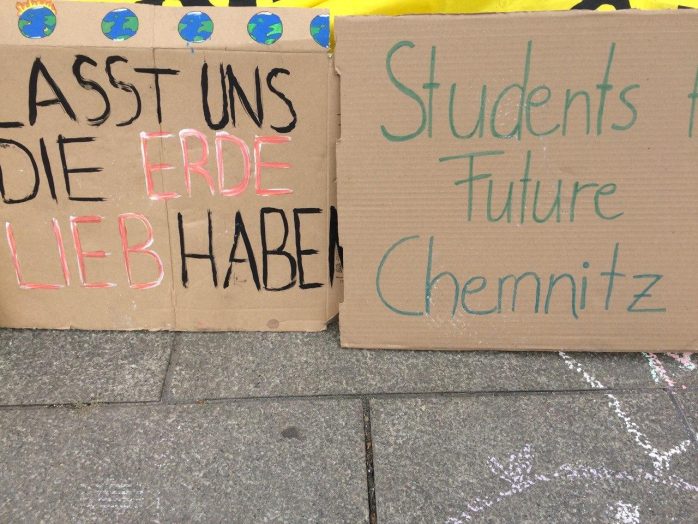 LASST UNS
DIE ERDE
LIEB HABEN
Students f
Future
Chemnitz